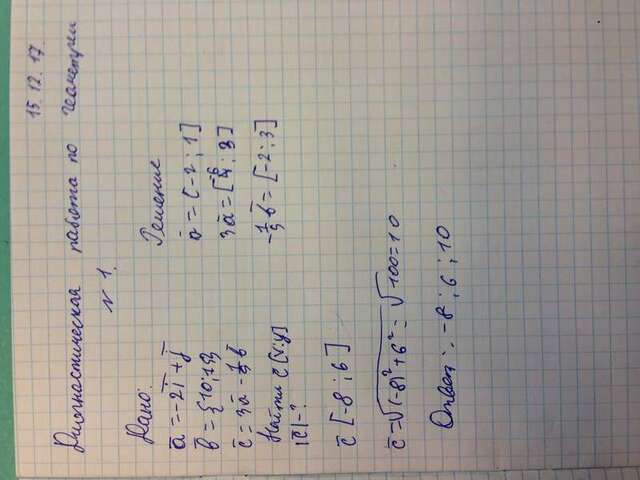 15.12.17.
Диагностическая работа по геометрии
№1.
Дано:
a̅ = -2i̅ + j̅
b̅ =
c̅ = 3a̅ - b̅
Найти c̅ [x;y]
|c̅| - ?
Решение
a̅ = [-2; 1]
3a̅ = [-6; 3]
b̅ = [-2; 3]
c̅ [-8; 6]
c̅ = √(-8)² + 6² = √100 = 10
Ответ: -8; 6; 10